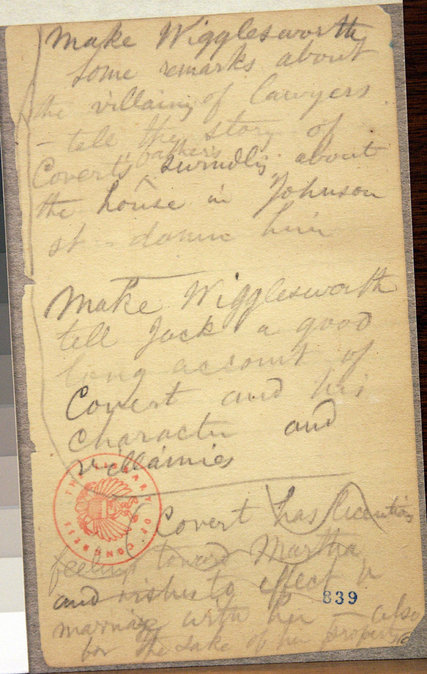 Make Wigglesworth
some remarks about
the villainy of lawyers
– tell the story of
Covert's father's swindling about
the house in Johnson
st – damn him
Make Wigglesworth
tell Jack a good
long account of
Covert and his
character and
villainies
THE LIBRARY OF CONGRESS
(Covert has licentious
feelings toward Martha
and wishes to effect a
marriage with her also
for the sake of her property
839